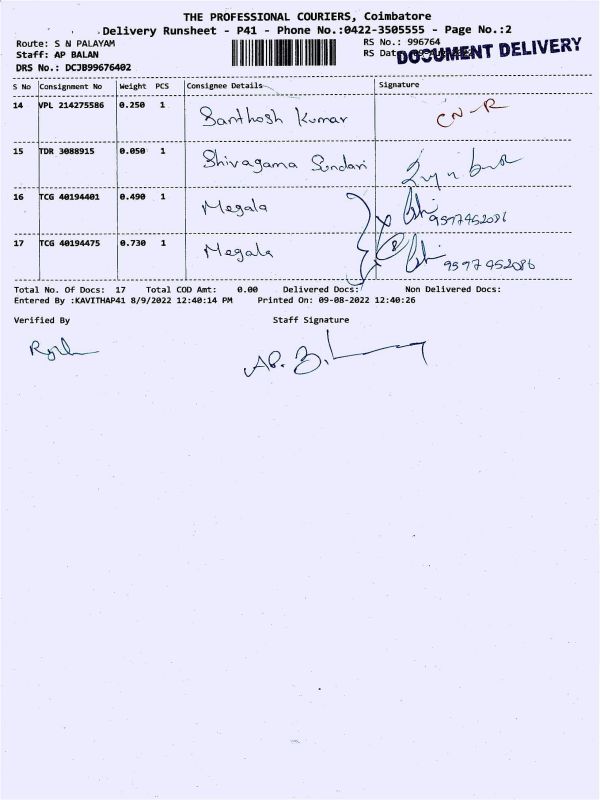 THE PROFESSIONAL COURIERS, Coimbatore
Delivery Runsheet - P41 - Phone No.:0422-3505555 - Page No.:2
Route: S N PALAYAM
RS No.: 996764
Staff: AP BALAN
RS Dat
DOCUMENT DELIVERY
DRS No.: DCJB99676402
S No Consignment No Weight PCS Consignee Details Signature
14 VPL 214275586 0.250 1 Santhosh Kumar CN-R
15 TDR 3088915 0.050 1 Shivagama Sundari
16 TCG 40194401 0.490 1 Megala 9597452086
17 TCG 40194475 0.730 1 Megala 9597452086
Total No. Of Docs: 17 Total COD Amt: 0.00 Delivered Docs: Non Delivered Docs:
Entered By :KAVITHAP41 8/9/2022 12:40:14 PM Printed On: 09-08-2022 12:40:26
Verified By Staff Signature